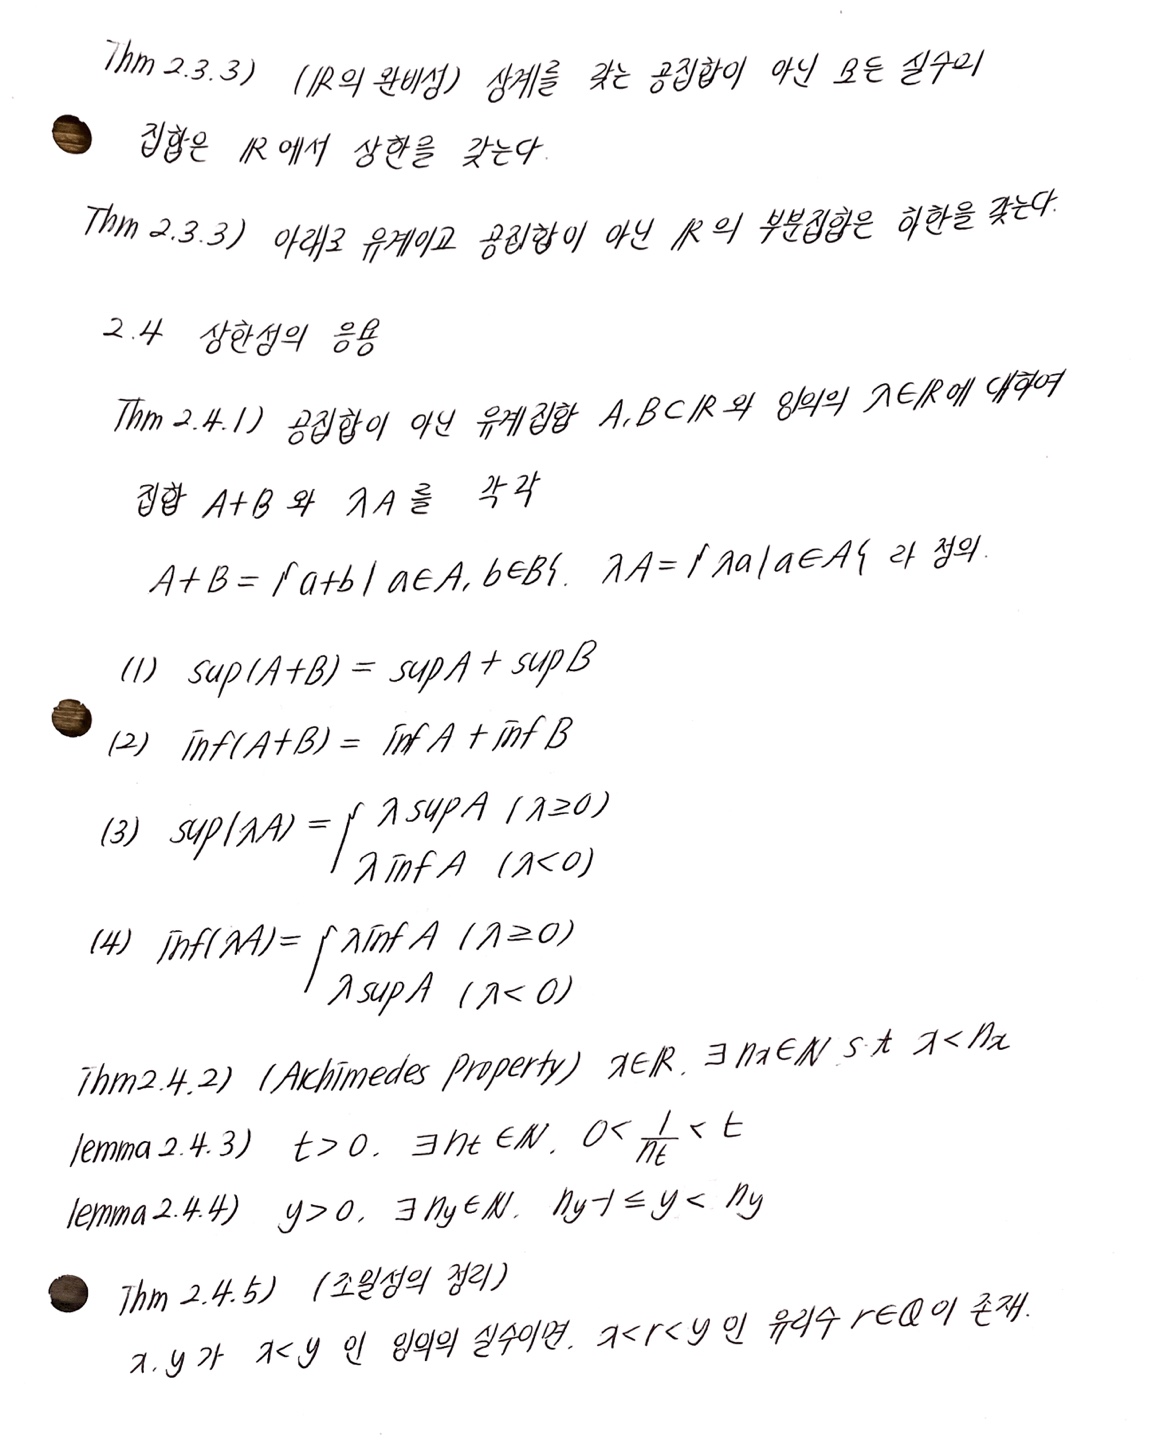 Thm 2.3.3) (ℝ의 완비성) 상계를 갖는 공집합이 아닌 모든 실수의
집합은 ℝ에서 상한을 갖는다.
Thm 2.3.3) 아래로 유계이고 공집합이 아닌 ℝ의 부분집합은 하한을 갖는다.
2.4 상한성의 응용
Thm 2.4.1) 공집합이 아닌 유계집합 A, B⊂ℝ와 임의의 λ∈ℝ에 대하여
집합 A+B 와 λA를 각각
A+B = {a+b | a∈A, b∈B}. λA = {λa | a∈A} 라 정의.
(1) sup(A+B) = sup A + sup B
(2) inf(A+B) = inf A + inf B
(3) sup(λA) = { λ sup A (λ≥0)
λ inf A (λ<0)
(4) inf(λA) = { λ inf A (λ≥0)
λ sup A (λ<0)
Thm 2.4.2) (Archimedes Property) x∈ℝ. ∃ nx∈ℕ s.t x<nx
lemma 2.4.3) t>0. ∃ nt∈ℕ. 0< 1/nt < t
lemma 2.4.4) y>0. ∃ ny∈ℕ. ny-1 ≤ y < ny
Thm 2.4.5) (조밀성의 정리)
x, y가 x<y 인 임의의 실수이면. x<r<y 인 유리수 r∈ℚ이 존재.